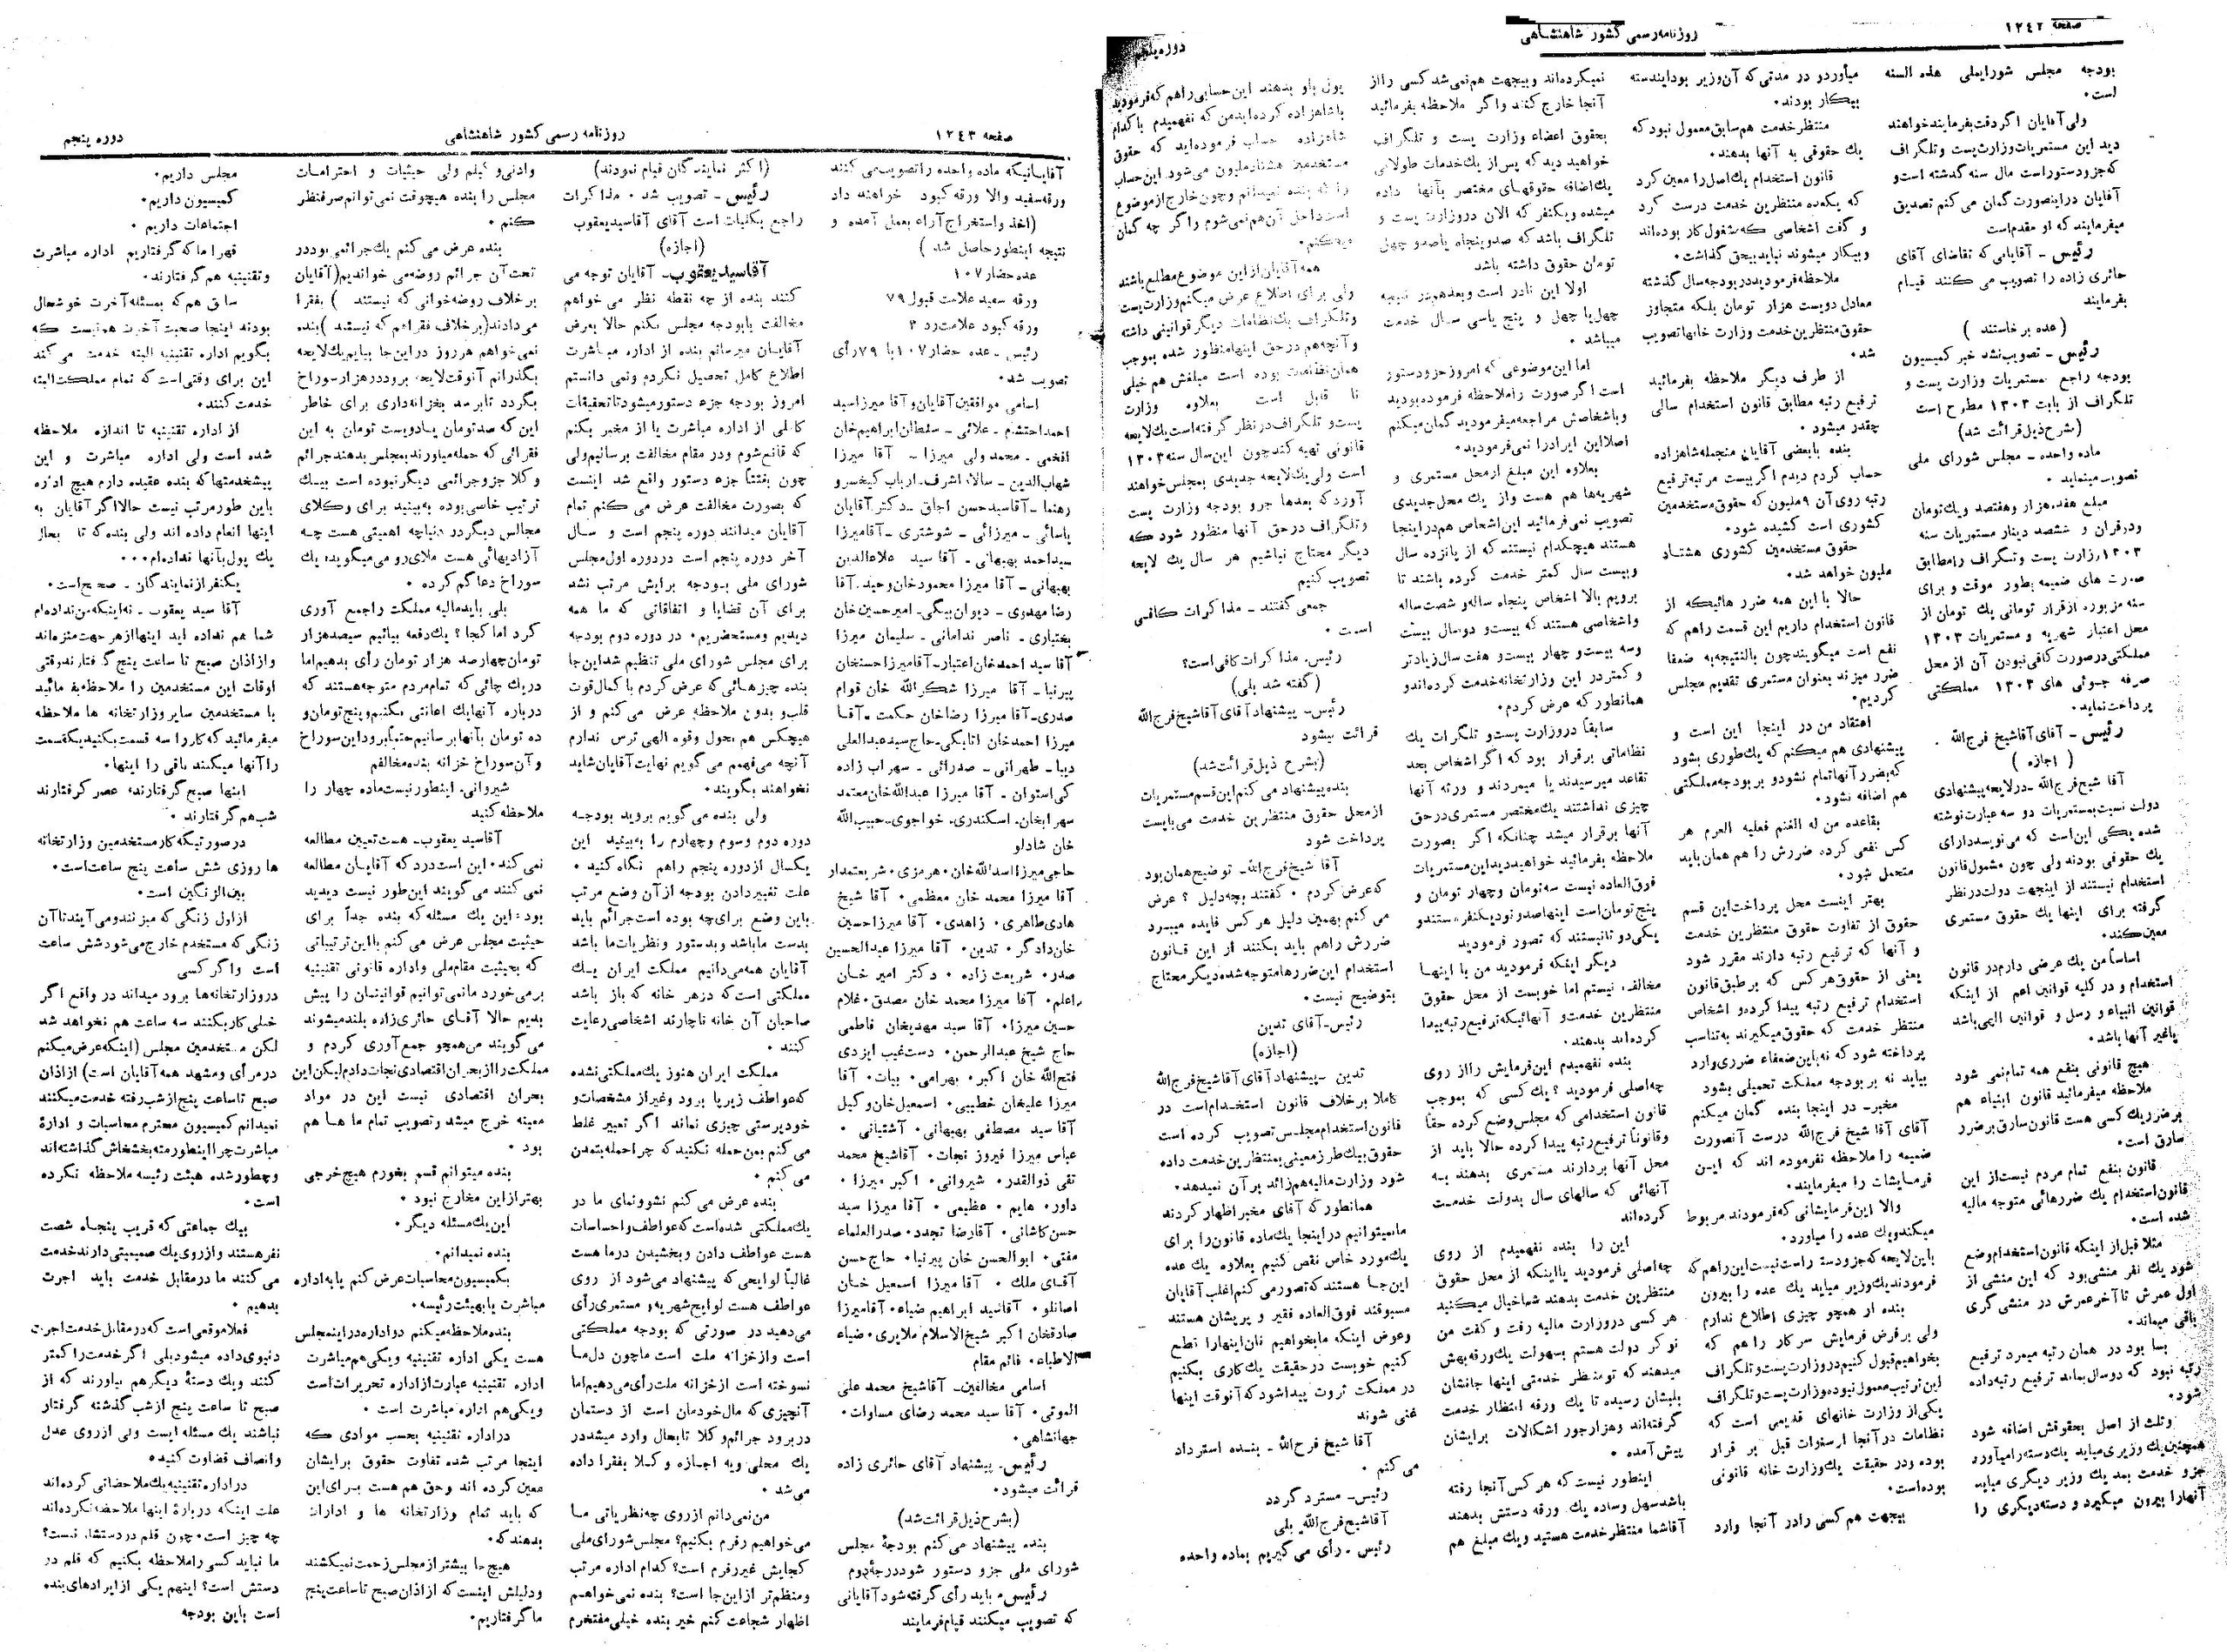 صفحه ۱۲۴۲
روزنامه رسمی کشور شاهنشاهی
دوره پنجم
بودجه مجلس شورایملی هذه السنه
است.
ولی آقایان اگر دقت بفرمایند خواهند
دید این مستمریات وزارت پست و تلگراف
که جزو دستور است مال سنه گذشته است و
آقایان در اینصورت گمان می کنم تصدیق
میفرمایند که او مقدم است
رئیس ـ آقایانی که تقاضای آقای
حائری زاده را تصویب می کنند قیام
بفرمایند
(عده برخاستند)
رئیس ـ تصویب نشد خبر کمیسیون
بودجه راجع بمستمریات وزارت پست و
تلگراف از بابت ۱۳۰۳ مطرح است
(بشرح ذیل قرائت شد)
ماده واحده ـ مجلس شورای ملی
تصویب مینماید .
مبلغ هفده هزار و هفتصد و یک تومان
و دو قران و ششصد دینار مستمریات سنه
۱۳۰۳ وزارت پست و تلگراف را مطابق
صورت های ضمیمه بطور موقت و برای
سنه مزبوره از قرار تومانی یک تومان از
محل اعتبار شهریه و مستمریات ۱۳۰۳
مملکتی در صورت کافی نبودن آن از محل
صرفه جوئی های ۱۳۰۳ مملکتی
پرداخت نماید.
رئیس ـ آقای آقا شیخ فرج‌الله .
(اجازه)
آقا شیخ فرج‌الله ـ در لایحه پیشنهادی
دولت نسبت بمستمریات دو سه عبارت نوشته
شده یکی این است که می نویسد دارای
یک حقوقی بودند ولی چون مشمول قانون
استخدام نیستند از اینجهت دولت در نظر
گرفته برای اینها یک حقوق مستمری
معین کند.
اساساً من یک عرضی دارم در قانون
استخدام و در کلیه قوانین اعم از اینکه
قوانین انبیاء و رسل و قوانین الهی باشد
یا غیر آنها باشد.
هیچ قانونی بنفع همه تمام نمی شود
ملاحظه میفرمائید قانون انبیاء هم
بر ضرر یک کسی هست قانون سارق بر ضرر
سارق است.
قانون بنفع تمام مردم نیست از این
قانون استخدام یک ضررهائی متوجه مالیه
شده است.
مثلا قبل از اینکه قانون استخدام وضع
شود یک نفر منشی بود که این منشی از
اول عمرش تا آخر عمرش در منشی گری
باقی میماند.
بسا بود در همان رتبه میمرد ترفیع
رتبه نبود که دو سال بماند ترفیع رتبه داده
شود.
و ثلث از اصل بحقوقش اضافه شود
همچنین یک وزیری میاید یک دسته را میآورد
جزو خدمت بعد یک وزیر دیگری میاید
آنها را بیرون میکرد و دسته دیگری را
میآورد و در مدتی که آن وزیر بود ایندسته
بیکار بودند.
منتظر خدمت هم سابق معمول نبود که
یک حقوقی به آنها بدهند.
قانون استخدام یک اصل را معین کرد
که یکعده منتظرین خدمت درست کرد
و گفت اشخاصی که مشغول کار بوده‌اند
و بیکار میشوند نباید بیحق گذاشت.
ملاحظه فرمودید در بودجه سال گذشته
معادل دویست هزار تومان بلکه متجاوز
حقوق منتظرین خدمت وزارت خانها تصویب
شد.
از طرف دیگر ملاحظه بفرمائید
ترفیع رتبه مطابق قانون استخدام سالی
چقدر میشود.
بنده با بعضی آقایان منجمله شاهزاده
حساب کردم دیدم اگر بیست مرتبه ترفیع
رتبه روی آن ۹ ملیون که حقوق مستخدمین
کشوری است کشیده شود.
حقوق مستخدمین کشوری هشتاد
ملیون خواهد شد.
حالا با این همه ضررهائیکه از
قانون استخدام داریم این قسمت را هم که
نفع است میگویند چون بالنتیجه به ضعفا
ضرر میزند بعنوان مستمری تقدیم مجلس
کردیم.
اعتقاد من در اینجا این است و
پیشنهادی هم میکنم که یک طوری بشود
که بضرر آنها تمام نشود و بر بودجه مملکتی
هم اضافه نشود.
بقاعده من له الغنم فعلیه الغرم هر
کس نفعی کرده ضررش را هم همان باید
متحمل شود.
بهتر اینست محل پرداخت این قسم
حقوق از تفاوت حقوق منتظرین خدمت
و آنها که ترفیع رتبه دارند مقرر شود
یعنی از حقوق هر کس که بر طبق قانون
استخدام ترفیع رتبه پیدا کرده و اشخاص
منتظر خدمت که حقوق میگیرند به تناسب
پرداخته شود که نه باین ضعفاء ضرری وارد
بیاید نه بر بودجه مملکت تحمیلی بشود
مخبر ـ در اینجا بنده گمان میکنم
آقای آقا شیخ فرج‌الله درست آنصورت
ضمیمه را ملاحظه نفرموده اند که این
فرمایشات را میفرمایند.
والا این فرمایشاتی که فرمودند مربوط
باین لایحه که جزو دسته راست نیست این را هم که
فرمودند یک وزیر میاید یک عده را بیرون
میکند و یک عده را میاورد.
بنده از همچو چیزی اطلاع ندارم
ولی بر فرض فرمایش سرکار را هم که
بخواهیم قبول کنیم در وزارت پست و تلگراف
این ترتیب معمول نبوده وزارت پست و تلگراف
یکی از وزارت خانهای قدیمی است که
نظامات در آنجا از سنوات قبل بر قرار
بوده و در حقیقت یک وزارت خانه قانونی
بوده است.
بیجهت هم کسی را در آنجا وارد
نمیکرده‌اند و بیجهت هم نمی شد کسی را از
آنجا خارج کنند و اگر ملاحظه بفرمائید
بحقوق اعضاء وزارت پست و تلگراف
خواهید دید که پس از یک خدمات طولانی
یک اضافه حقوقهای مختصر بآنها داده
میشده و یکنفر که الان در وزارت پست و
تلگراف باشد که صد و پنجاه یا صد و چهل
تومان حقوق داشته باشد
اولا این نادر است و بعد هم در نتیجه
چهل یا چهل و پنج یا سی سال خدمت
میباشد .
اما این موضوعی که امروز جزو دستور
است اگر صورت را ملاحظه فرموده بودید
و باشخاص مراجعه میفرمودید گمان میکنم
اصلا این ایراد را نمی فرمودید.
بعلاوه این مبلغ از محل مستمری و
شهریه‌ها هم هست و از یک محل جدیدی
تصویب نمی فرمائید این اشخاص هم در اینجا
هستند هیچکدام نیستند که از پانزده سال
و بیست سال کمتر خدمت کرده باشند تا
برویم بالا اشخاص پنجاه ساله و شصت ساله
و اشخاصی هستند که بیست و دو سال بیست
و سه بیست و چهار بیست و هفت سال زیادتر
و کمتر در این وزارتخانه خدمت کرده‌اند و
همانطور که عرض کردم.
سابقاً در وزارت پست و تلگرات یک
نظاماتی برقرار بود که اگر اشخاص بحد
تقاعد میرسیدند یا میمردند و ورثه آنها
چیزی نداشتند یک مختصر مستمری در حق
آنها برقرار میشد چنانکه اگر بصورت
ملاحظه بفرمائید خواهید دید این مستمریات
فوق العاده نیست سه تومان و چهار تومان و
پنج تومان است اینها صد و نود یکنفر هستند و
یکی دو تا نیستند که تصور فرمودید
دیگر اینکه فرمودید من با اینها
مخالف نیستم اما خوبست از محل حقوق
منتظرین خدمت و آنهائیکه ترفیع رتبه پیدا
کرده‌اند بدهند.
بنده نفهمیدم این فرمایش را از روی
چه اصلی فرمودید ؟ یک کسی که بموجب
قانون استخدامی که مجلس وضع کرده حقاً
و قانوناً ترفیع رتبه پیدا کرده حالا باید از
محل آنها بردارند مستمری بدهند به
آنهائی که سالهای سال بدولت خدمت
کرده‌اند
این را بنده نفهمیدم از روی
چه اصلی فرمودید یا اینکه از محل حقوق
منتظرین خدمت بدهند شما خیال میکنید
هر کسی در وزارت مالیه رفت و گفت من
نوکر دولت هستم بسهولت یک ورقه بهش
میدهند که تو منتظر خدمتی اینها جانشان
بلبشان رسیده تا یک ورقه انتظار خدمت
گرفته‌اند و هزار جور اشکالات برایشان
پیش آمده .
اینطور نیست که هر کس آنجا رفته
باشد سهل و ساده یک ورقه دستش بدهند
آقا شما منتظر خدمت هستید و یک مبلغ هم
پول باو بدهند این حسابی را هم که فرمودید
با شاهزاده کرده‌اید من که نفهمیدم با کدام
شاهزاده حساب فرموده‌اید که حقوق
مستخدمین هشتاد ملیون می شود. این حساب
را که بنده نمیدانم و چون خارج از موضوع
است داخل آن هم نمی شوم را گر چه گمان
میکنم.
همه آقایان از این موضوع مطلع باشند
ولی برای اطلاع عرض میکنم وزارت پست
و تلگراف یک نظامات دیگر قوانینی داشته
و آنچه هم در حق اینها منظور شده بموجب
همان نظامات بوده است مبلغش هم خیلی
نا قابل است بعلاوه وزارت
پست و تلگراف در نظر گرفته است یک لایحه
قانونی تهیه کند چون این سال سنه ۱۳۰۳
است ولی یک لایحه جدیدی بمجلس خواهند
آورد که بعدها جزو بودجه وزارت پست
و تلگراف در حق آنها منظور شود که
دیگر محتاج نباشیم هر سال یک لایحه
تصویب کنیم
جمعی گفتند ـ مذاکرات کافی
است .
رئیس ـ مذاکرات کافی است؟
(گفته شد بلی)
رئیس ـ پیشنهاد آقای آقا شیخ فرج‌الله
قرائت میشود
(بشرح ذیل قرائت شد)
بنده پیشنهاد می کنم این قسم مستمریات
از محل حقوق منتظرین خدمت می بایست
پرداخت شود
آقا شیخ فرج‌الله ـ توضیح همان بود
که عرض کردم . گفتند بچه دلیل ؟ عرض
می کنم بهمین دلیل هر کس فایده میبرد
ضررش را هم باید بکنند از این قانون
استخدام این ضررها متوجه شده دیگر محتاج
بتوضیح نیست.
رئیس ـ آقای تدین
(اجازه)
تدین ـ پیشنهاد آقای آقا شیخ فرج‌الله
کاملا بر خلاف قانون استخدام است در
قانون استخدام مجلس تصویب کرده است
حقوق بیک طرز معینی بمنتظرین خدمت داده
شود وزارت مالیه هم زائد بر آن نمیدهد.
همانطور که آقای مخبر اظهار کردند
ما نمیتوانیم در اینجا یک ماده قانون را برای
یک مورد خاص نقض کنیم بعلاوه یک عده
این جا هستند که تصور می کنم اغلب آقایان
مسبوقند فوق العاده فقیر و پریشان هستند
و عوض اینکه ما بخواهیم نان اینها را قطع
کنیم خوبست در حقیقت یک کاری بکنیم
در مملکت ثروت پیدا شود که آنوقت اینها
غنی شوند
آقا شیخ فرج‌الله ـ بنده استرداد
می کنم .
رئیس ـ مسترد گردد
آقا شیخ فرج‌الله ـ بلی
رئیس ـ رأی می گیریم بماده واحده
صفحه ۱۲۴۳
روزنامه رسمی کشور شاهنشاهی
دوره پنجم
آقایانیکه ماده واحده را تصویب می کنند
ورقه سفید والا ورقه کبود خواهند داد
(اخذ و استخراج آراء بعمل آمده و
نتیجه اینطور حاصل شد )
عده حضار ۱۰۷
ورقه سفید علامت قبول ۷۹
ورقه کبود علامت رد ۳
رئیس ـ عده حضار ۱۰۷ با ۷۹ رأی
تصویب شد.
اسامی موافقین آقایان و آقا میرزا سید
احمد احتشام ـ علائی ـ سلطان ابراهیم خان
افخمی ـ محمد ولی میرزا ـ آقا میرزا
شهاب‌الدین ـ سالار اشرف ـ ارباب کیخسرو
رهنما ـ آقا سید حسن اجاق ـ دکتر آقایان
یاسائی ـ میرزائی ـ شوشتری ـ آقا میرزا
سید احمد بهبهانی ـ آقا سید علاءالدین
بهبهانی ـ آقا میرزا محمود خان وحید ـ آقا
رضا مهدوی ـ دیوان بیگی ـ امیر حسین خان
بختیاری ـ ناصر ندامانی ـ سلیمان میرزا
آقا سید احمد خان اعتبار ـ آقا میرزا حسنخان
پیرنیا ـ آقا میرزا شکرالله خان قوام
صدری ـ آقا میرزا رضا خان حکمت ـ آقا
میرزا احمد خان اتابکی ـ حاج سید عبدالعلی
دیبا ـ طهرانی ـ صدرائی ـ سهراب زاده
کی استوان ـ آقا میرزا عبدالله خان معتمد
سهرابخان ـ اسکندری ـ خواجوی ـ حبیب‌الله
خان شادلو
حاجی میرزا اسدالله خان . هرمزی . شریعتمدار
آقا میرزا محمد خان معظمی . آقا شیخ
هادی طاهری . زاهدی . آقا میرزا حسین
خان دادگر . تدین . آقا میرزا عبدالحسین
صدر . شریعت زاده . دکتر امیر خان
اعلم . آقا میرزا محمد خان مصدق . غلام
حسین میرزا . آقا سید مهدیخان فاطمی
حاج شیخ عبدالرحمن . دست غیب ایزدی
فتح‌الله خان اکبر . بهرامی . بیات . آقا
میرزا علیخان خطیبی . اسمعیل خان وکیل
آقا سید مصطفی بهبهانی . آشتیانی .
عباس میرزا فیروز نجات . آقا شیخ محمد
تقی ذوالقدر . شیروانی . اکبر میرزا .
داور . هایم . عظیمی . آقا میرزا سید
حسن کاشانی . آقا رضا تجدد . صدرالعلماء
مفتی . ابوالحسن خان پیرنیا . حاج حسن
آقای ملک . آقا میرزا اسمعیل خان
اصانلو . آقا سید ابراهیم ضیاء . آقا میرزا
صادقخان اکبر شیخ الاسلام ملایری . ضیاء
الاطباء . قائم مقام
اسامی مخالفین ـ آقا شیخ محمد علی
الموتی . آقا سید محمد رضای مساوات .
جهانشاهی .
رئیس ـ پیشنهاد آقای حائری زاده
قرائت میشود.
(بشرح ذیل قرائت شد)
بنده پیشنهاد می کنم بودجهٔ مجلس
شورای ملی جزو دستور شود درجهٔ دوم
رئیس ـ باید رأی گرفته شود آقایانی
که تصویب میکنند قیام فرمایند
(اکثر نمایندگان قیام نمودند)
رئیس ـ تصویب شد . مذاکرات
راجع بکلیات است آقای آقا سید یعقوب
(اجازه)
آقا سید یعقوب ـ آقایان توجه می
کنند بنده از چه نقطه نظر می خواهم
مخالفت با بودجه مجلس بکنم حالا بعرض
آقایان میرسانم بنده از اداره مباشرت
اطلاع کامل تحصیل نکردم و نمی دانستم
امروز بودجه جزء دستور میشود تا تحقیقات
کاملی از اداره مباشرت یا از مخبر بکنم
که قانع شوم و در مقام مخالفت برسانیم ولی
چون بغتتاً جزء دستور واقع شد اینست
که بصورت مخالفت عرض می کنم تمام
آقایان میدانند دوره پنجم است و سال
آخر دوره پنجم است در دوره اول مجلس
شورای ملی بودجه برایش مرتب نشد
برای آن قضایا و اتفاقاتی که ما همه
دیدیم و مستحضریم . در دوره دوم بودجه
برای مجلس شورای ملی تنظیم شد این جا
بنده چیزهائی که عرض کردم با کمال قوت
قلب و بدون ملاحظه عرض می کنم و از
هیچکس هم بحول و قوه الهی ترس ندارم
آنچه می فهمم می گویم نهایت آقایان شاید
نخواهند بگویند.
ولی بنده می گویم بروید بودجه
دوره دوم و سوم و چهارم را به بینید این
یکسال از دوره پنجم را هم نگاه کنید .
علت تغییر دادن بودجه از آن وضع مرتب
باین وضع برای چه بوده است جرائم باید
بدست ما باشد و بدستور و نظریات ما باشد
آقایان همه می دانیم مملکت ایران یک
مملکتی است که در هر خانه که باز باشد
صاحبان آن خانه ناچارند اشخاصی رعایت
کنند .
مملکت ایران هنوز یک مملکتی نشده
که عواطف زیر پا برود و غیر از مشخصات و
خود پرستی چیزی نماند اگر تعبیر غلط
می کنم بمن حمله نکنید که چرا حمله بتمدن
می کنم .
بنده عرض می کنم نشو و نمای ما در
یک مملکتی شده است که عواطف و احساسات
هست عواطف دادن و بخشیدن در ما هست
غالباً لوایحی که پیشنهاد می شود از روی
عواطف هست لوایح شهریه و مستمری رأی
می دهید در صورتی که بودجه مملکتی
است و از خزانه ملت است ما چون دل ما
نسوخته است از خزانه ملت رأی می دهیم اما
آنچیزی که مال خودمان است از دستمان
در برود جرائم وکلا تا بحال وارد میشد در
یک محلی و به اجازه وکلا بفقرا داده
می شد .
من نمی دانم از روی چه نظریاتی ما
می خواهیم رفرم بکنیم؟ مجلس شورای ملی
کجایش غیر رفرم است؟ کدام اداره مرتب
و منظم تر از این جا است؟ بنده نمی خواهم
اظهار شجاعت کنم خیر بنده خیلی مفتخرم
وادنی وکیلم ولی حیثیات و احترامات
مجلس را بنده هیچوقت نمی توانم سر فنظر
کنم .
بنده عرض می کنم یک جرائمی بود در
تحت آن جرائم روضه می خواندیم (آقایان
بر خلاف روضه خوانی که نیستند ) بفقرا
می دادند (بر خلاف فقرا هم که نیستند ) بنده
نمی خواهم هر روز در این جا بیایم یک لایحه
بگذرانم آنوقت لایحه برود در هزار سوراخ
بگردد تا برسد بخزانه داری برای خاطر
این که صد تومان یا دویست تومان به این
فقرائی که حمله میاورند بمجلس بدهند جرائم
وکلا جزو جرائمی دیگر نبوده است بیک
ترتیب خاصی بوده به بینید برای وکلای
مجالس دیگر در دنیا چه اهمیتی هست چه
آزادیهائی هست ملای رومی میگوید، یک
سوراخ دعا گم کرده .
بلی باید مالیه مملکت را جمع آوری
کرد اما کجا ؟ یک دفعه بیائیم سیصد هزار
تومان چهار صد هزار تومان رأی بدهیم اما
در یک جائی که تمام مردم متوجه هستند که
درباره آنها یک اعانتی بکنیم و پنج تومان و
ده تومان بآنها برسانیم حتماً برود این سوراخ
و آن سوراخ خزانه بنده مخالفم
شیروانی ـ اینطور نیست ماده چهار را
ملاحظه کنید
آقا سید یعقوب ـ هست تعیین مطالعه
نمی کند . این است درد که آقایان مطالعه
نمی کنند می گویند این طور نیست دیدید
بود؛ این یک مسئله که بنده جداً برای
حیثیت مجلس عرض می کنم با این ترتیباتی
که بحیثیت مقام ملی و اداره قانونی تقنینیه
برمی خورد ما نمی توانیم قوانینمان را پیش
بدیم حالا آقای حائری زاده بلند میشوند
می گویند من همچو جمع آوری کردم و
مملکت را از بحران اقتصادی نجات دادم لیکن این
بحران اقتصادی نیست این در مواد
معینه خرج میشد و تصویب تمام ما ها هم
بود .
بنده میتوانم قسم بخورم هیچ خرجی
بهتر از این مخارج نبود .
این یک مسئله دیگر .
بنده نمیدانم.
بکمیسیون محاسبات عرض کنم یا به اداره
مباشرت یا بهیئت رئیسه.
بنده ملاحظه میکنم دو اداره در اینمجلس
هست یکی اداره تقنینیه و یکی هم مباشرت
اداره تقنینیه عبارت از اداره تحریرات است
و یکی هم اداره مباشرت است .
در اداره تقنینیه بحسب موادی که
اینجا مرتب شده تفاوت حقوق برایشان
معین کرده اند و حق هم هست برای این
که باید تمام وزارتخانه ها و ادارات
بدهند که .
هیچ جا بیشتر از مجلس زحمت نمیکشند
و دلیلش اینست که از اذان صبح تا ساعت پنج
ما گرفتاریم.
مجلس داریم.
کمیسیون داریم.
اجتماعات داریم .
قهرا ما که گرفتاریم اداره مباشرت
و تقنینیه هم گرفتارند.
سابق هم که بمسئله آخرت خوشحال
بودند اینجا صحبت آخرت هم نیست که
بگویم اداره تقنینیه البته خدمت می کند
این برای وقتی است که تمام مملکت البته
خدمت کنند.
از اداره تقنینیه تا اندازه ملاحظه
شده است ولی اداره مباشرت و این
پیشخدمتها که بنده عقیده دارم هیچ اداره
باین طور مرتب نیست حالا اگر آقایان به
اینها انعام داده اند ولی بنده که تا بحال
یک پول بآنها نداده ام . . .
یکنفر از نمایندگان ـ صحیح است .
آقا سید یعقوب ـ نه اینکه من نداده ام
شما هم نداده اید اینها از هر جهت منزه اند
و از اذان صبح تا ساعت پنج گرفتارند وقتی
اوقات این مستخدمین را ملاحظه بفرمائید
با مستخدمین سایر وزارتخانه ها ملاحظه
میفرمائید که کار را سه قسمت بکنید یکقسمت
را آنها میکنند باقی را اینها.
اینها صبح گرفتارند عصر گرفتارند
شب هم گرفتارند .
در صورتیکه کار مستخدمین وزارتخانه
ها روزی شش ساعت پنج ساعت است.
بین الزنگین است.
از اول زنگی که میزنند و می آیند تا آن
زنگی که مستخدم خارج می شود شش ساعت
است و اگر کسی
در وزارتخانه ها برود میداند در واقع اگر
خیلی کار بکنند سه ساعت هم نخواهد شد
لکن مستخدمین مجلس (اینکه عرض میکنم
در مرأی و مشهد همه آقایان است) از اذان
صبح تا ساعت پنج از شب رفته خدمت میکنند
نمیدانم کمیسیون محترم محاسبات و ادارهٔ
مباشرت چرا اینطور مته بخشخاش گذاشته‌اند
و چطور شده هیئت رئیسه ملاحظه نکرده
است.
بیک جماعتی که قریب پنجاه شصت
نفر هستند و از روی یک صمیمیتی دارند خدمت
می کنند ما در مقابل خدمت باید اجرت
بدهیم .
فعلا موقعی است که در مقابل خدمت اجرت
دنیوی داده میشود بلی اگر خدمت را کمتر
کنند و یک دستهٔ دیگر هم بیاورند که از
صبح تا ساعت پنج از شب گذشته گرفتار
نباشند یک مسئله ایست ولی از روی عدل
و انصاف قضاوت کنید.
در اداره تقنینیه یک ملاحضاتی کرده‌اند
علت اینکه دربارهٔ اینها ملاحظه نکرده‌اند
چه چیز است . چون قلم در دستشان نیست؟
ما نباید کسی را ملاحظه بکنیم که قلم در
دستش است؟ اینهم یکی از ایرادهای بنده
است باین بودجه